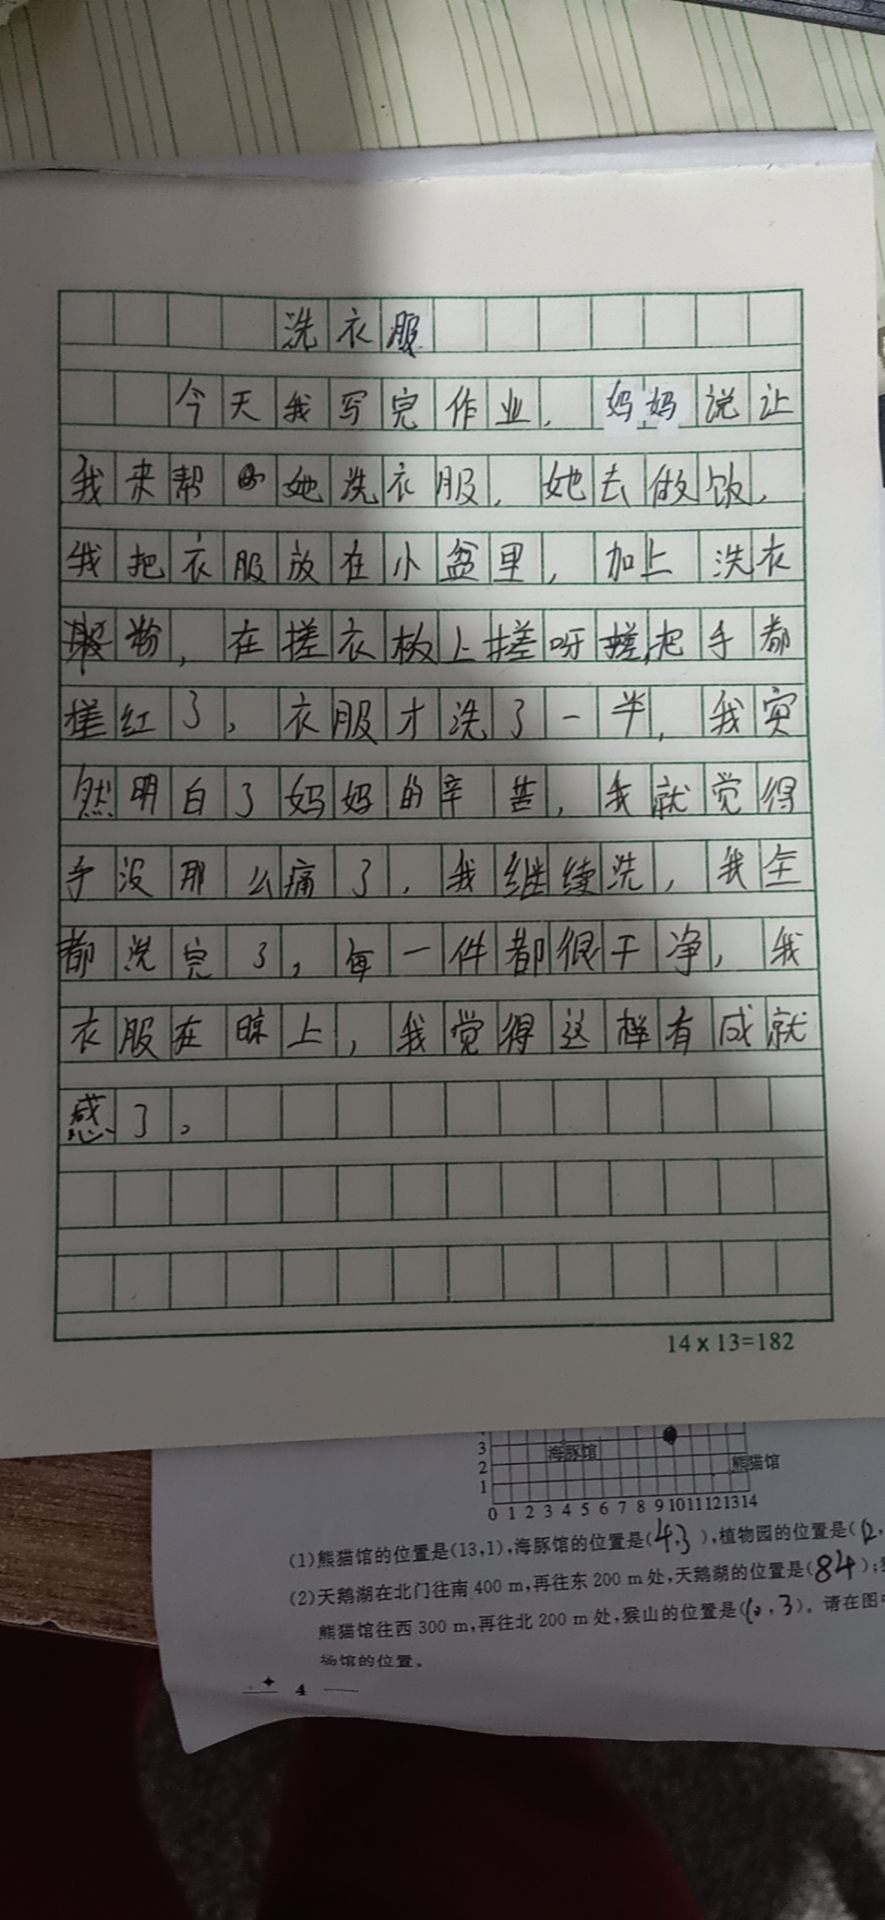 洗衣服
今天我写完作业，妈妈说让
我来帮她洗衣服，她去做饭，
我把衣服放在小盆里，加上洗衣
粉，在搓衣板上搓呀搓，把手都
搓红了，衣服才洗了一半，我突
然明白了妈妈的辛苦，我就觉得
手没那么痛了，我继续洗，我全
都洗完了，每一件都很干净，我
衣服在晾上，我觉得这样有成就
感了。
14×13=182
3
2
1
海豚馆
熊猫馆
0 1 2 3 4 5 6 7 8 9 10 11 12 13 14
(1)熊猫馆的位置是(13,1),海豚馆的位置是(4,3),植物园的位置是(12,
(2)天鹅湖在北门往南 400 m,再往东 200 m 处,天鹅湖的位置是(84);
熊猫馆往西 300 m,再往北 200 m 处,猴山的位置是(10,3)。请在图
场馆的位置。
4